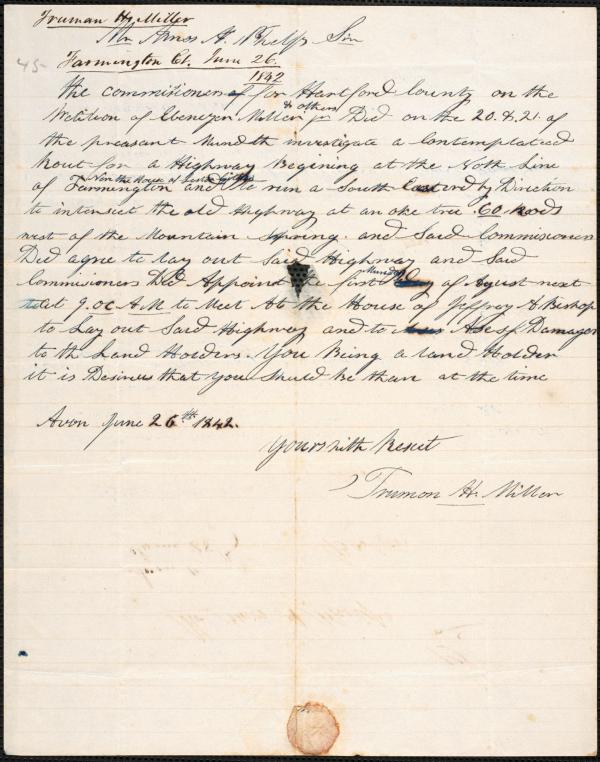 Truman H. Miller
Mr Amos A. Phelps Sir
45-
Farmington Ct. June 26.
1842
the commitioners for Hartford County on the
& others
Petition of Ebenezer Miller Did on the 20. & 21. of
the preasant Munth investigate a Contemplated
Rout for a Highway Begining at the North Line
Near the House of
of Farmington and to run a South Eastword by Direction
to intersect the old Highway at an oke tree 60 rods
west of the Mountain Spring. and Said Commisioners
Did agre to lay out Said Highway and Said
Munday
Commisioners Did Appoint the first of August next
at 9. oc A.M to Meet At the House of Jeffrey A Bishop
to Lay out Said Highway and to Asess Damages
to th Land Holders. You Being a land Holder
it is Desirus that You Should be thare at the time
Avon June 26th 1842.
Yours with Respet
Truman H. Miller